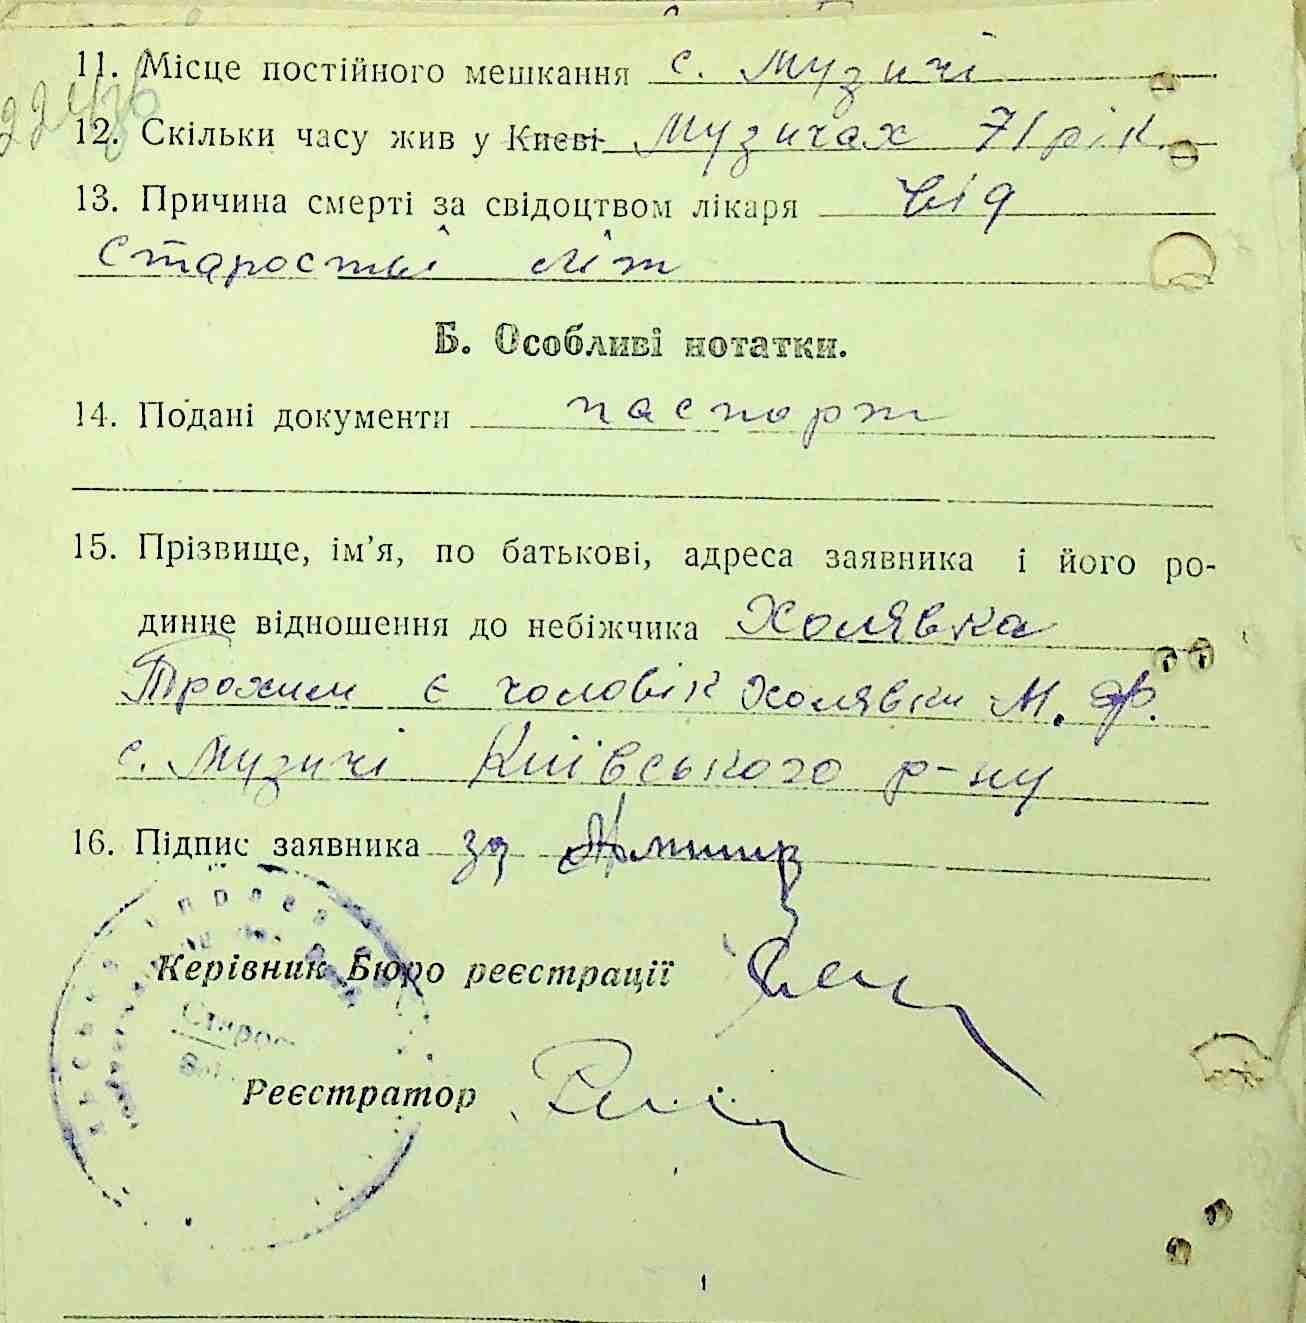 11. Місце постійного мешкання с. Музичі
12. Скільки часу жив у Києві Музичах 71 рік.
13. Причина смерті за свідоцтвом лікаря від
старостві літ
Б. Особливі нотатки.
14. Подані документи паспорт
15. Прізвище, ім'я, по батькові, адреса заявника і його ро-
динне відношення до небіжчика Холявка
Трохим є чоловік Холявки М. Ф.
с. Музичі Київського р-ну
16. Підпис заявника за
Керівник Бюро реєстрації
Реєстратор